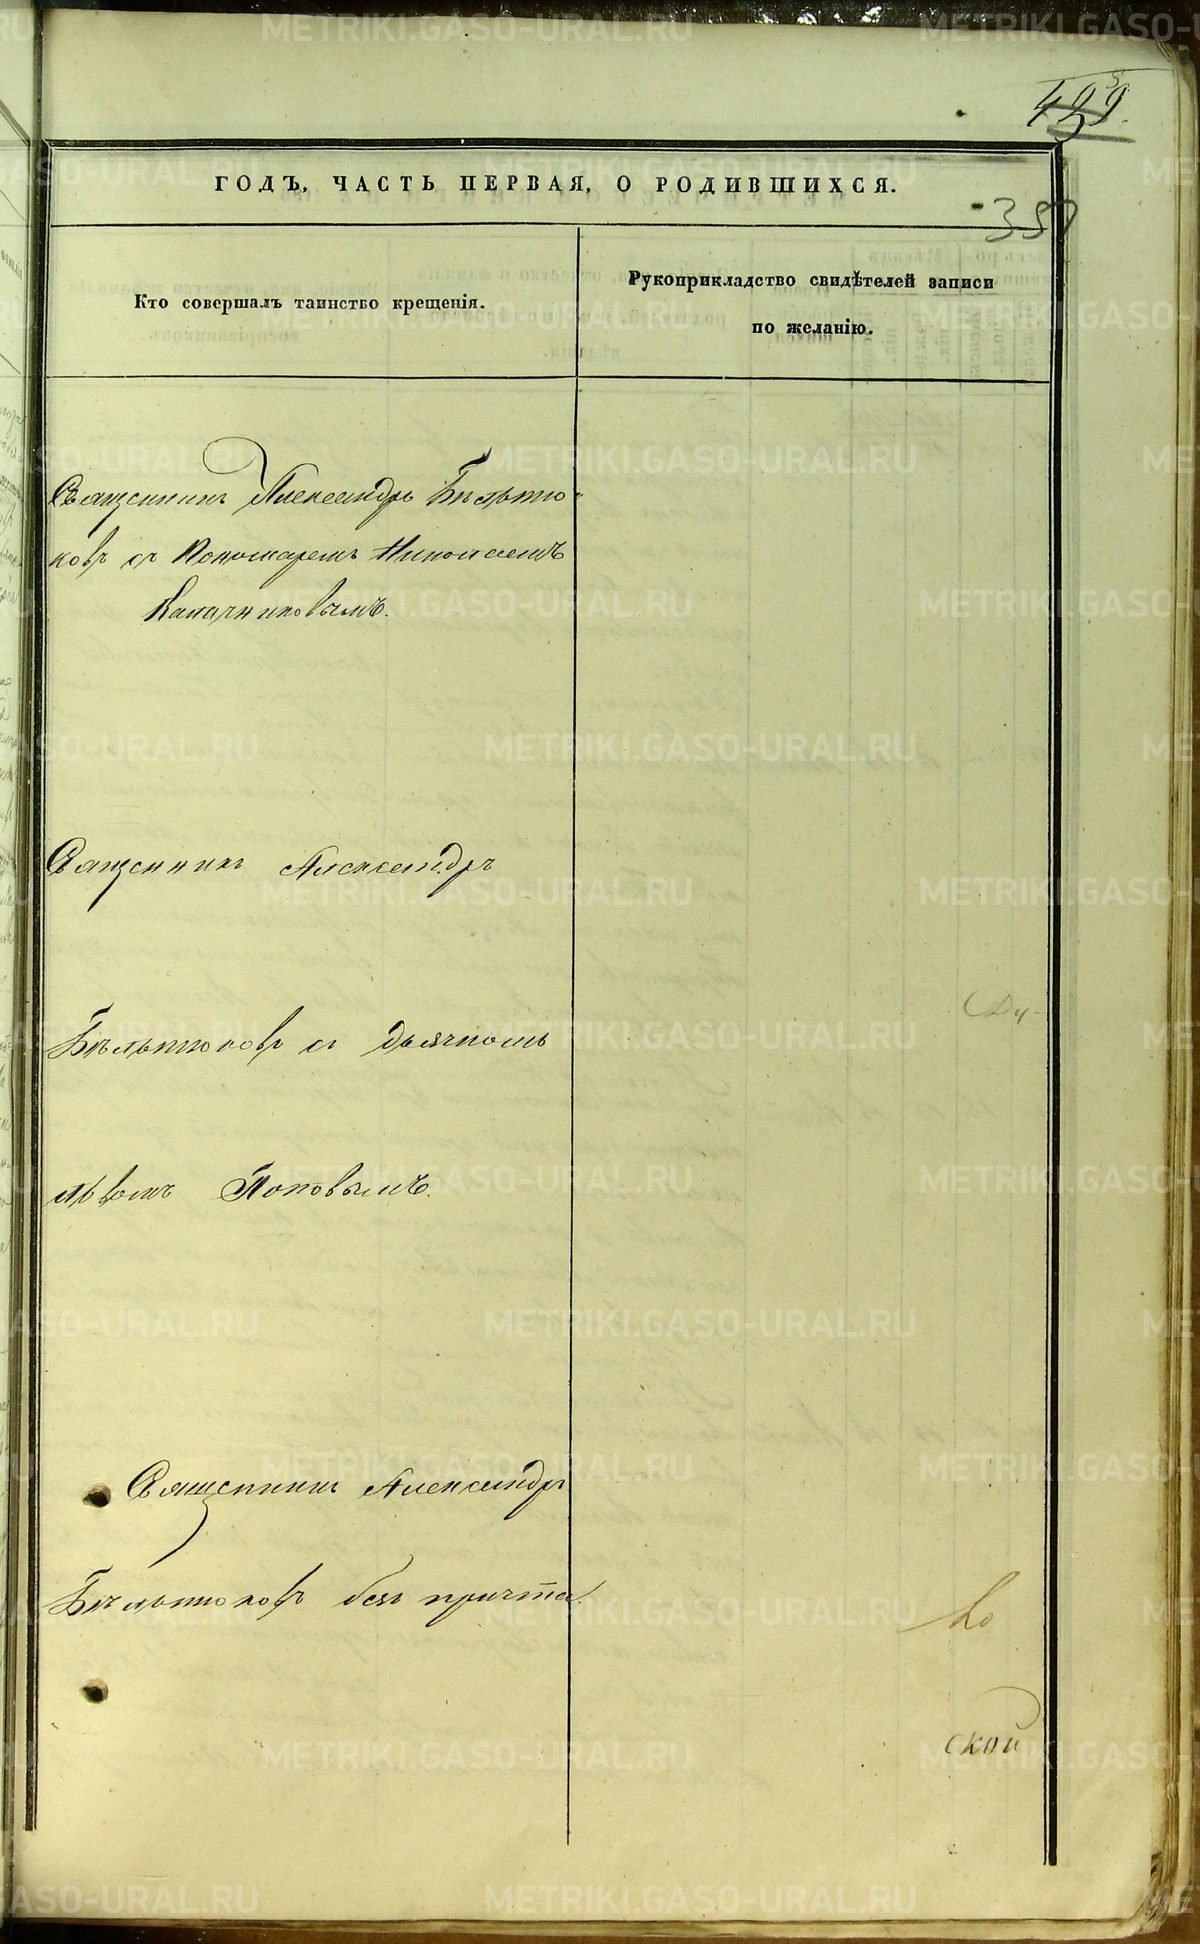 499.
ГОДЪ, ЧАСТЬ ПЕРВАЯ, О РОДИВШИХСЯ.
357
Кто совершалъ таинство крещенія.
Рукоприкладство свидѣтелей записи
по желанію.
Священникъ Александръ Бѣльтю-
ковъ съ Пономаремъ Николаемъ
Калачниковымъ.
Священникъ Александръ
Бѣльтюковъ съ дьячкомъ
Львомъ Поповымъ.
Священникъ Александръ
Бѣльтюковъ безъ причта.
ской
METRIKI.GASO-URAL.RU